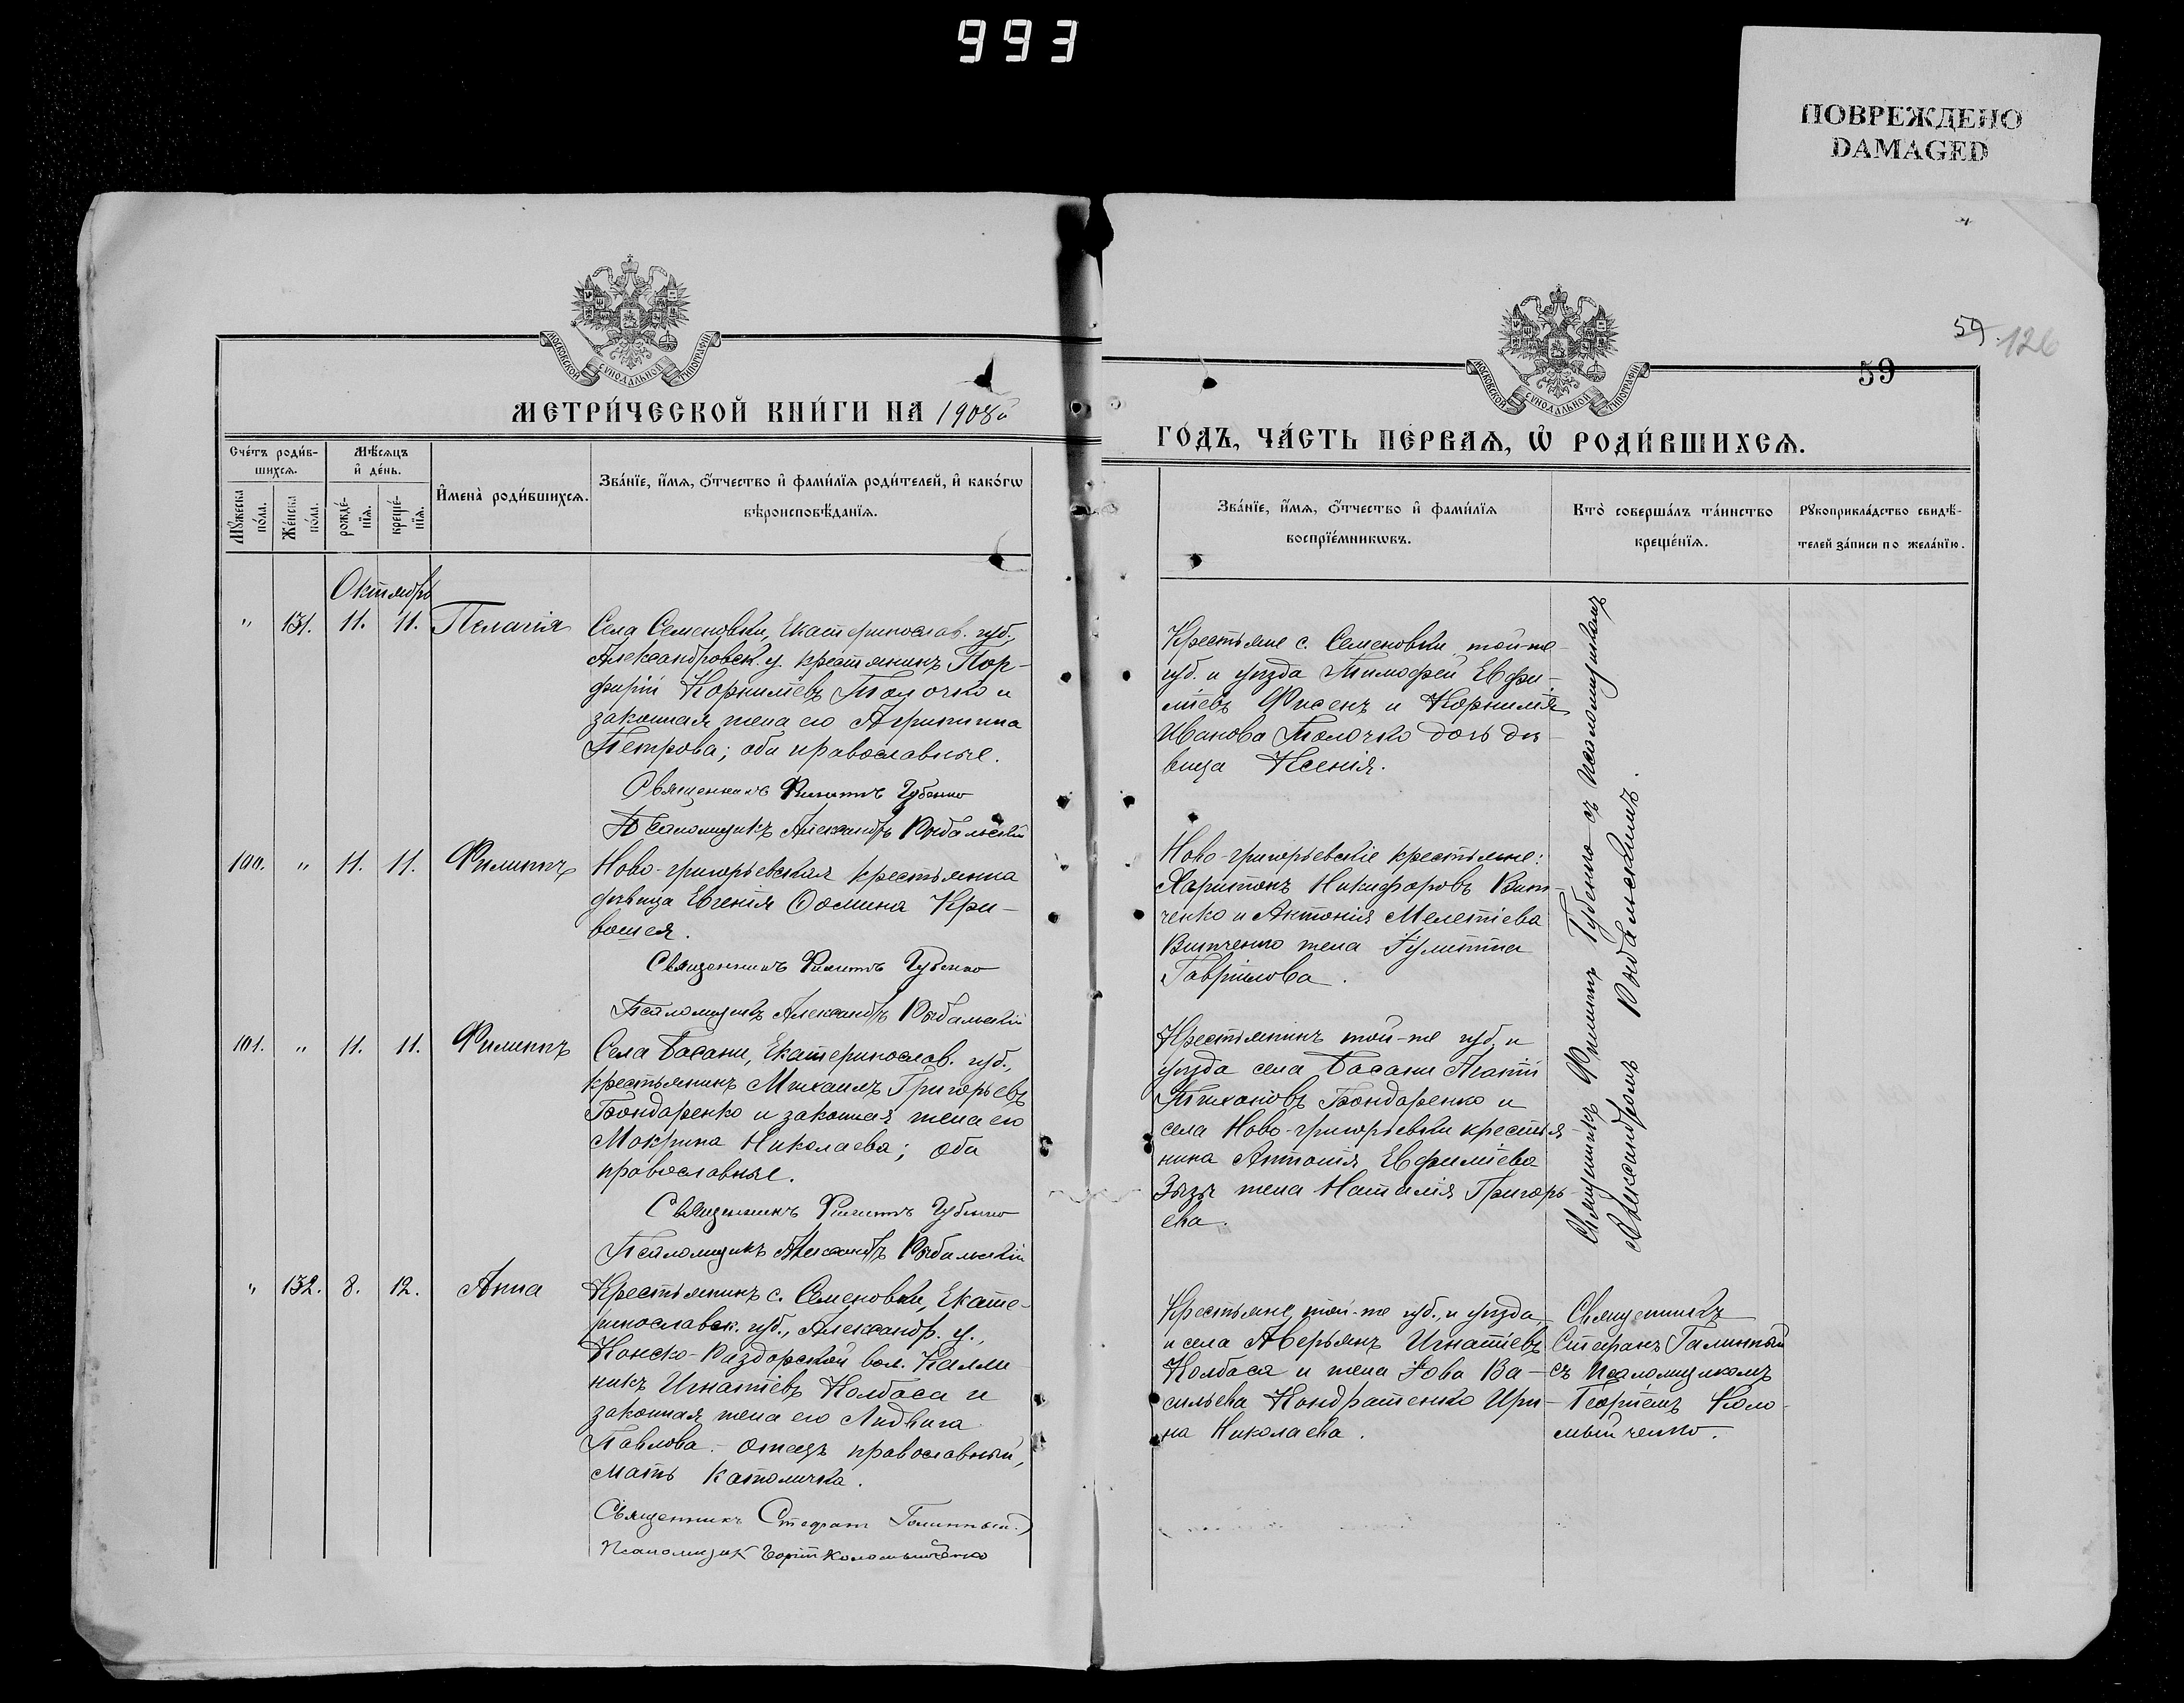 993
ПОВРЕЖДЕНО
DAMAGED
59
126
59
МОСКОВСКОЙ СѴНОДАЛЬНОЙ ТИПОГРАФІИ
МОСКОВСКОЙ СѴНОДАЛЬНОЙ ТИПОГРАФІИ
МЕТРИ́ЧЕСКОЙ КНИ́ГИ НА 1908й
ГО́ДЪ, ЧА́СТЬ ПЕ́РВАѦ, Ѽ РОДИ́ВШИХСѦ.
Сче́тъ роди́в-
шихсѧ.
Мꙋжеска
по́ла.
Женска
по́ла.
Мѣ́сѧцъ
и҆ де́нь.
рожде́-
нїѧ.
креще́-
нїѧ.
И҆мена̀ роди́вшихсѧ.
Зва́нїе, и҆́мѧ, ѻ҆́тчество и҆ фами́лїѧ роди́телей, и҆ како́гѡ
вѣроисповѣ́данїѧ.
Зва́нїе, и҆́мѧ, ѻ҆́тчество и҆ фами́лїѧ
воспрїе́мникѡвъ.
Кто̀ соверша́лъ та́инство
креще́нїѧ.
Рꙋкоприкла́дство свидѣ́-
телей за́писи по жела́нїю.
Октябрь
" 131. 11. 11. Пелагія
Села Семеновки, Екатеринослав. губ.,
Александровск. у. крестянинъ Пор-
фирій Корниліевъ Толочко и
законная жена его Агрипина
Петрова; оба православные.
Священникъ Филиппъ Губенко
Псаломщикъ Александръ Рыбальскій
Крестьяне с. Семеновки той-же
губ. и уѣзда Тимофей Евфи-
міевъ Фисенъ и Корнилія
Иванова Толочко дочь дѣ-
вица Ксенія.
Священникъ Филиппъ Губенко съ псаломщикомъ
Александромъ Рыбальскимъ.
100. " 11. 11. Филиппъ
Ново-григорьевская крестьянка
дѣвица Евгенія Ѳомина Кри-
вошея.
Священникъ Филиппъ Губенко
Псаломщикъ Александръ Рыбальскій
Ново-григорьевскіе крестьяне:
Харитонъ Никифоровъ Вит-
ченко и Антонія Мелетіева
Витченко жена Іулитта
Гавріилова.
101. " 11. 11. Филиппъ
Села Басани, Екатеринослав. губ.,
крестьянинъ Михаилъ Григорьевъ
Бондаренко и законная жена его
Мокрина Николаева; оба
православные.
Священникъ Филиппъ Губенко
Псаломщикъ Александръ Рыбальскій
Крестьянинъ той-же губ. и
уѣзда села Басани Агапій
Тихоновъ Бондаренко и
села Ново-григорьевки крестья
нина Антонія Евфиміева
Зызы жена Наталія Григорь-
ева.
" 132. 8. 12. Анна
Крестьянинъ с. Семеновки, Екате-
ринославск. губ., Александр. у.,
Конско-Раздорской вол. Калли
никъ Игнатіевъ Колбаса и
законная жена его Людвига
Павлова. - отецъ православный,
мать католичка.
Священникъ Стефанъ Галинный
Псаломщик Георгій Коломыйченко
Крестьяне той-же губ., и уѣзда,
и села Аверьянъ Игнатіевъ
Колбаса и жена Іова Ва-
сильева Кондратенко Ири-
на Николаева.
Священникъ
Стефанъ Галинный
съ псаломщикомъ
Георгіемъ Коло-
мыйченко.